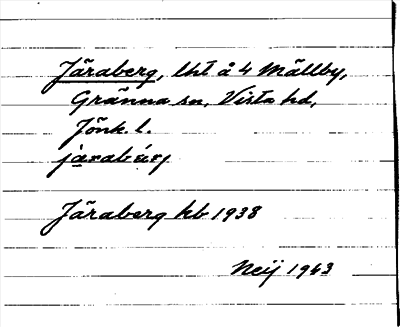 Järaberg, lht å 4 Mällby,
Gränna sn, Vista hd,
Jönk. l.
jarabärj
Järaberg kb 1938
Neij 1943